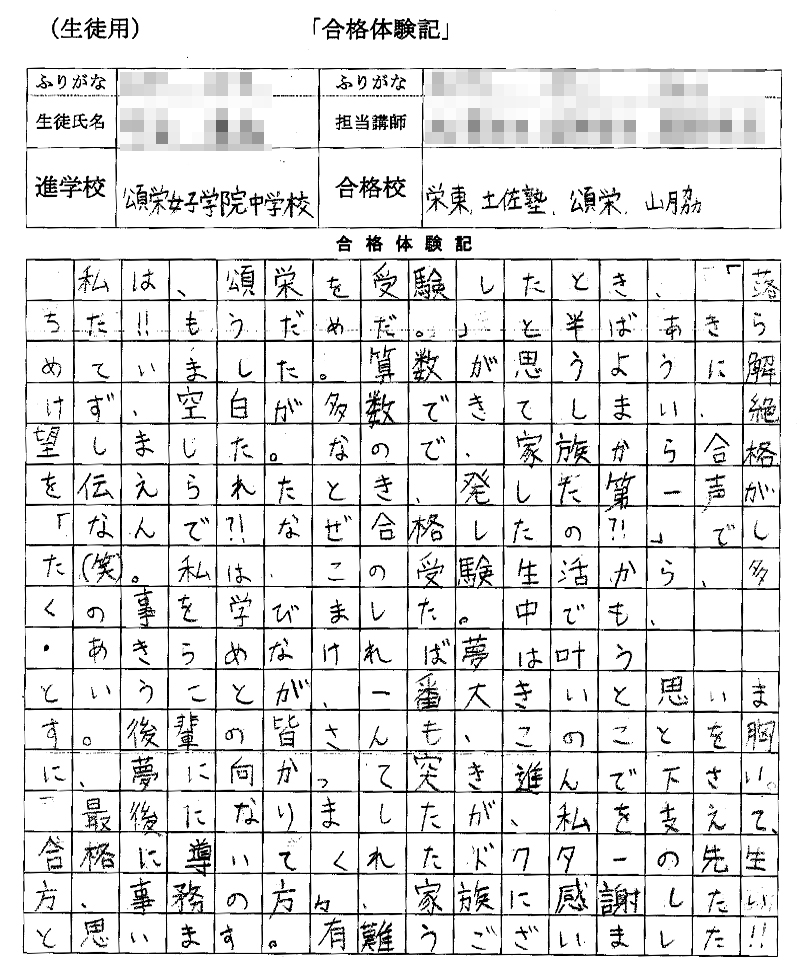 （生徒用） 「合格体験記」
ふりがな ふりがな
生徒氏名 担当講師
進学校 頌栄女子学院中学校 合格校 栄東、土佐塾、頌栄、山脇
合格体験記
私は、頌栄を受験したとき、「落
ちた!!もうだめだ。」と半ばあきら
めていました。算数が思うように解
けず、空白が多数できてしまい、絶
望しました。なので、家族から合格
を伝えられたとき、発した第一声が
「なんで?!なぜ合格したの?!」でし
た(笑)。私は、この受験生活から、多
くの事を学びました。中でも、
・あきらめなければ夢は叶う
ということが、一番大きいと思いま
す。後輩の皆さんも、このことを胸
に、夢に向かって突き進んで下さい。
最後になりましたが、私を支えて、
合格に導いてくれたドクターの先生
方、事務の方々、家族に感謝したい
と思います。有難うございました!!